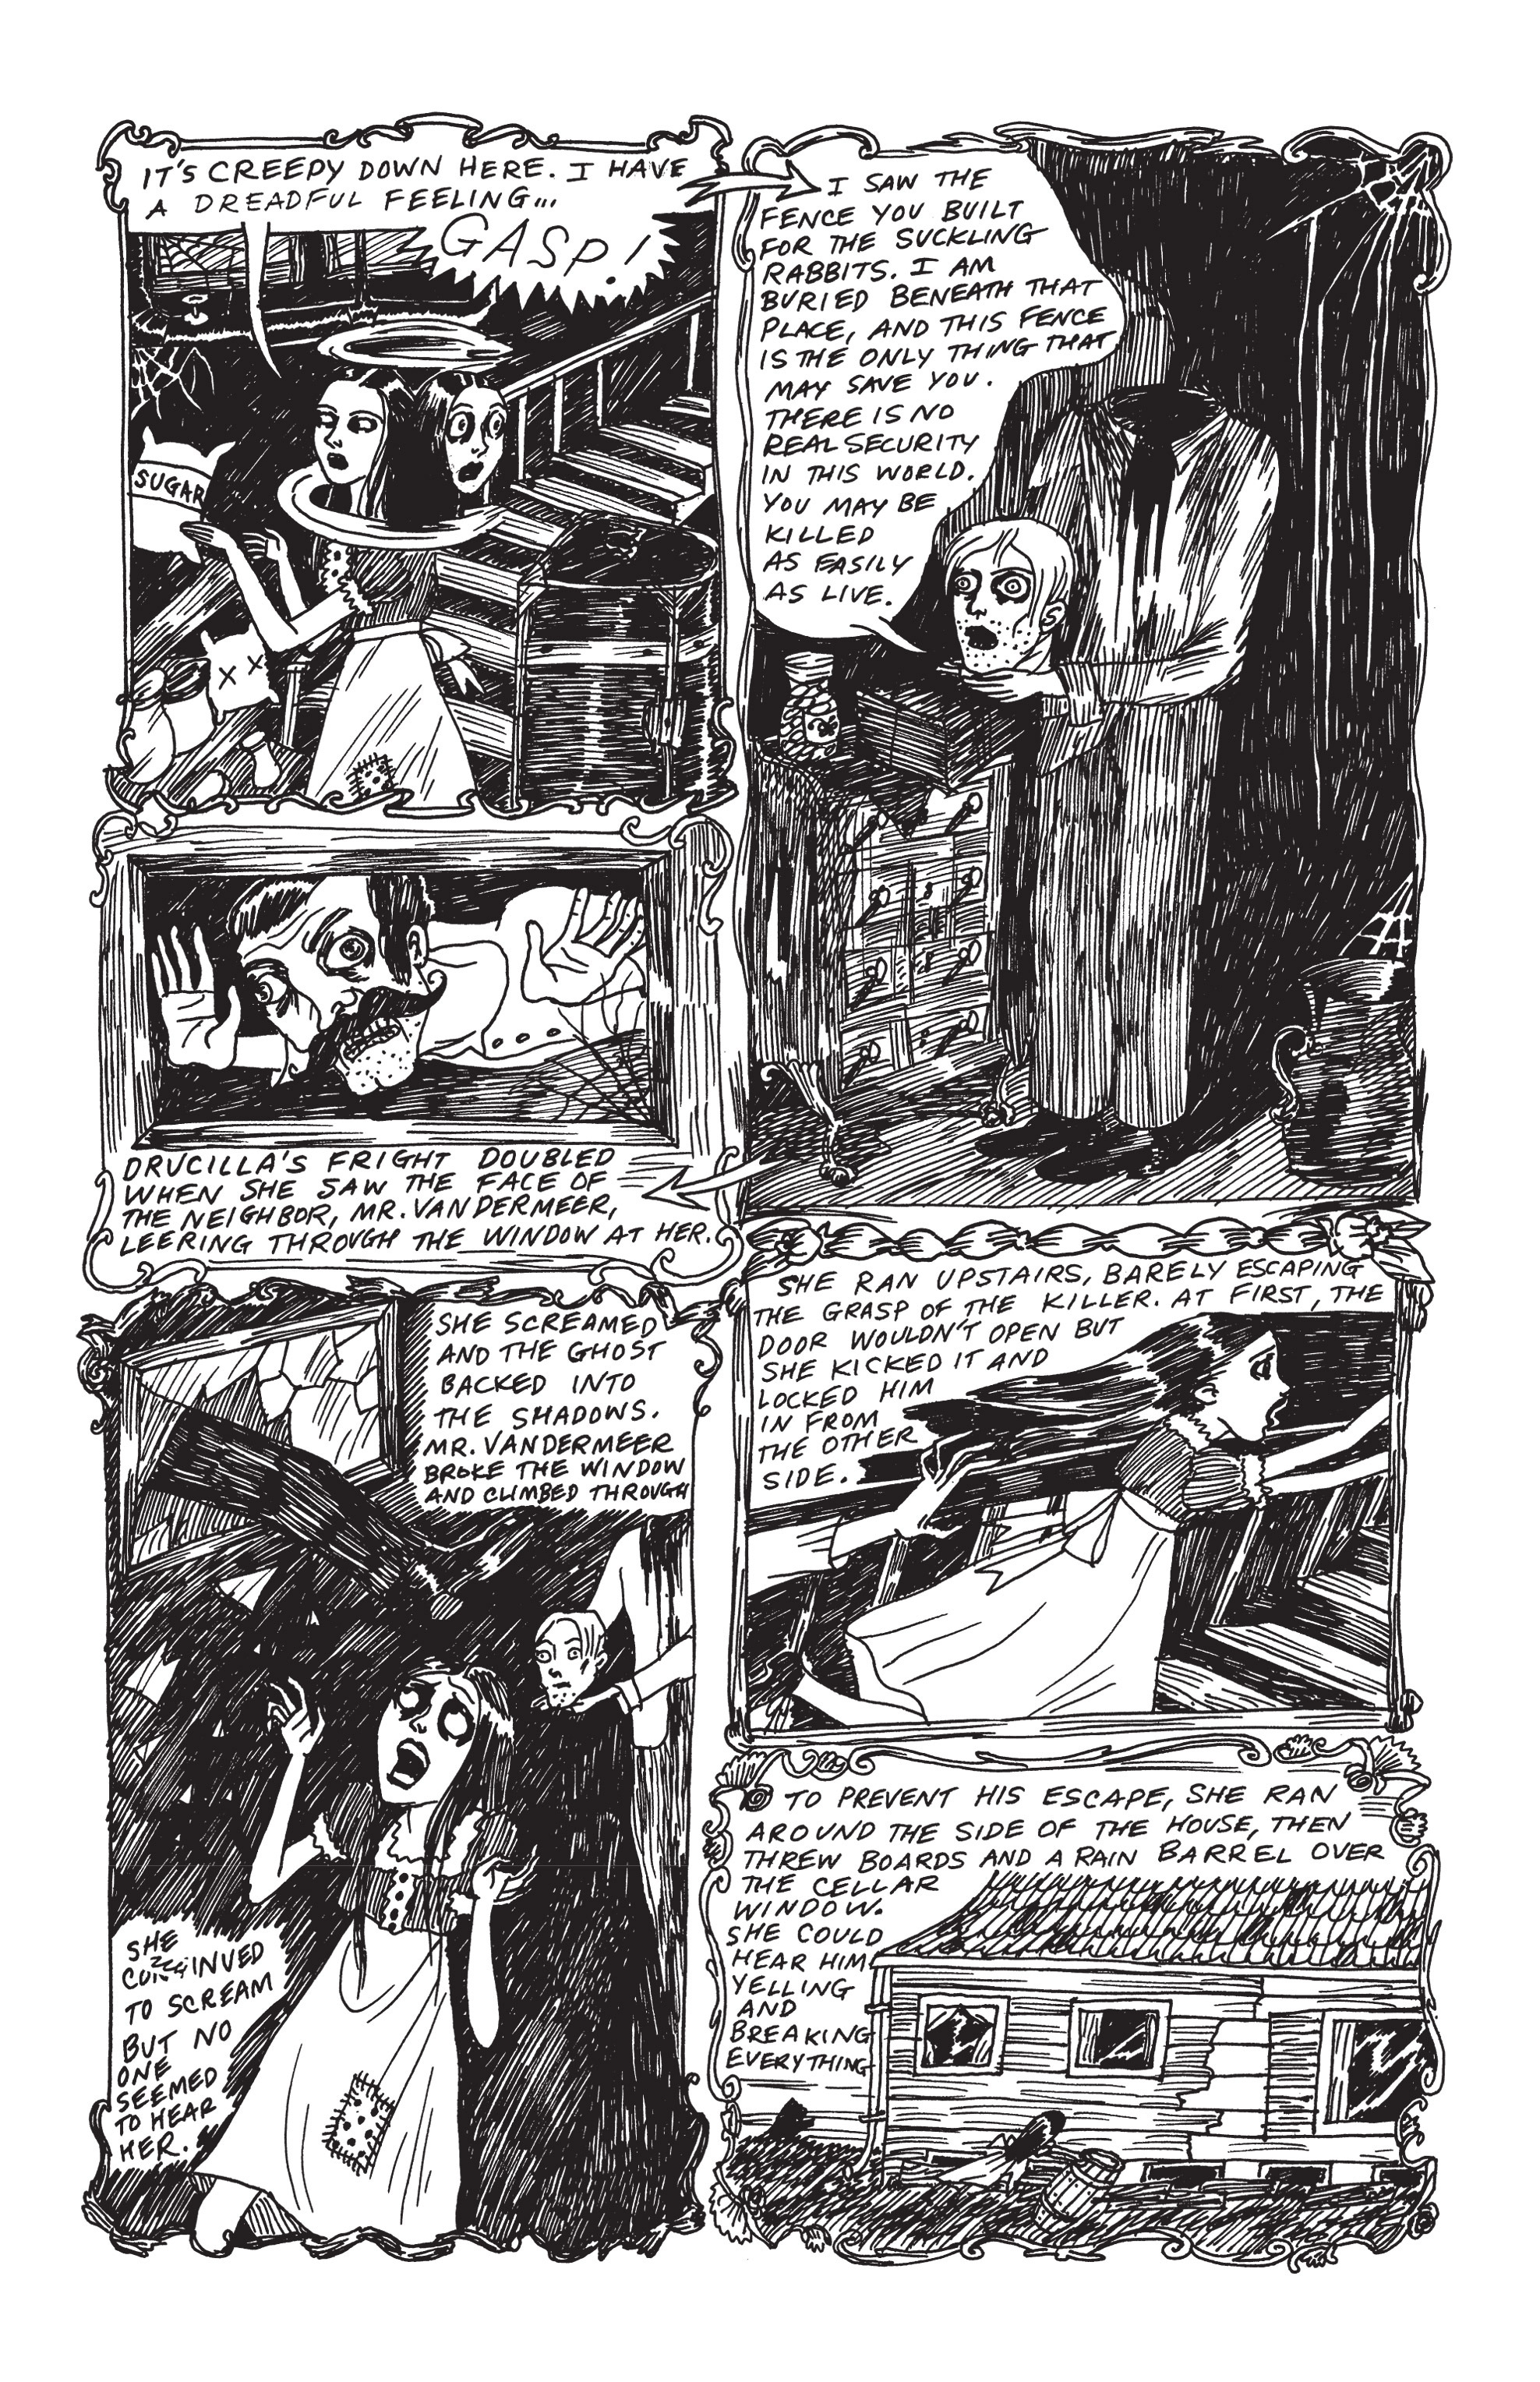 IT'S CREEPY DOWN HERE. I HAVE
A DREADFUL FEELING...
GASP!
SUGAR
X X
I SAW THE
FENCE YOU BUILT
FOR THE SUCKLING
RABBITS. I AM
BURIED BENEATH THAT
PLACE, AND THIS FENCE
IS THE ONLY THING THAT
MAY SAVE YOU.
THERE IS NO
REAL SECURITY
IN THIS WORLD.
YOU MAY BE
KILLED
AS EASILY
AS LIVE.
DRUCILLA'S FRIGHT DOUBLED
WHEN SHE SAW THE FACE OF
THE NEIGHBOR, MR. VANDERMEER,
LEERING THROUGH THE WINDOW AT HER.
SHE SCREAMED
AND THE GHOST
BACKED INTO
THE SHADOWS.
MR. VANDERMEER
BROKE THE WINDOW
AND CLIMBED THROUGH
SHE
TO SCREAM
BUT NO
ONE
SEEMED
TO HEAR
HER.
SHE RAN UPSTAIRS, BARELY ESCAPING
THE GRASP OF THE KILLER. AT FIRST, THE
DOOR WOULDN'T OPEN BUT
SHE KICKED IT AND
LOCKED HIM
IN FROM
THE OTHER
SIDE.
TO PREVENT HIS ESCAPE, SHE RAN
AROUND THE SIDE OF THE HOUSE, THEN
THREW BOARDS AND A RAIN BARREL OVER
THE CELLAR
WINDOW.
SHE COULD
HEAR HIM
YELLING
AND
BREAKING
EVERYTHING